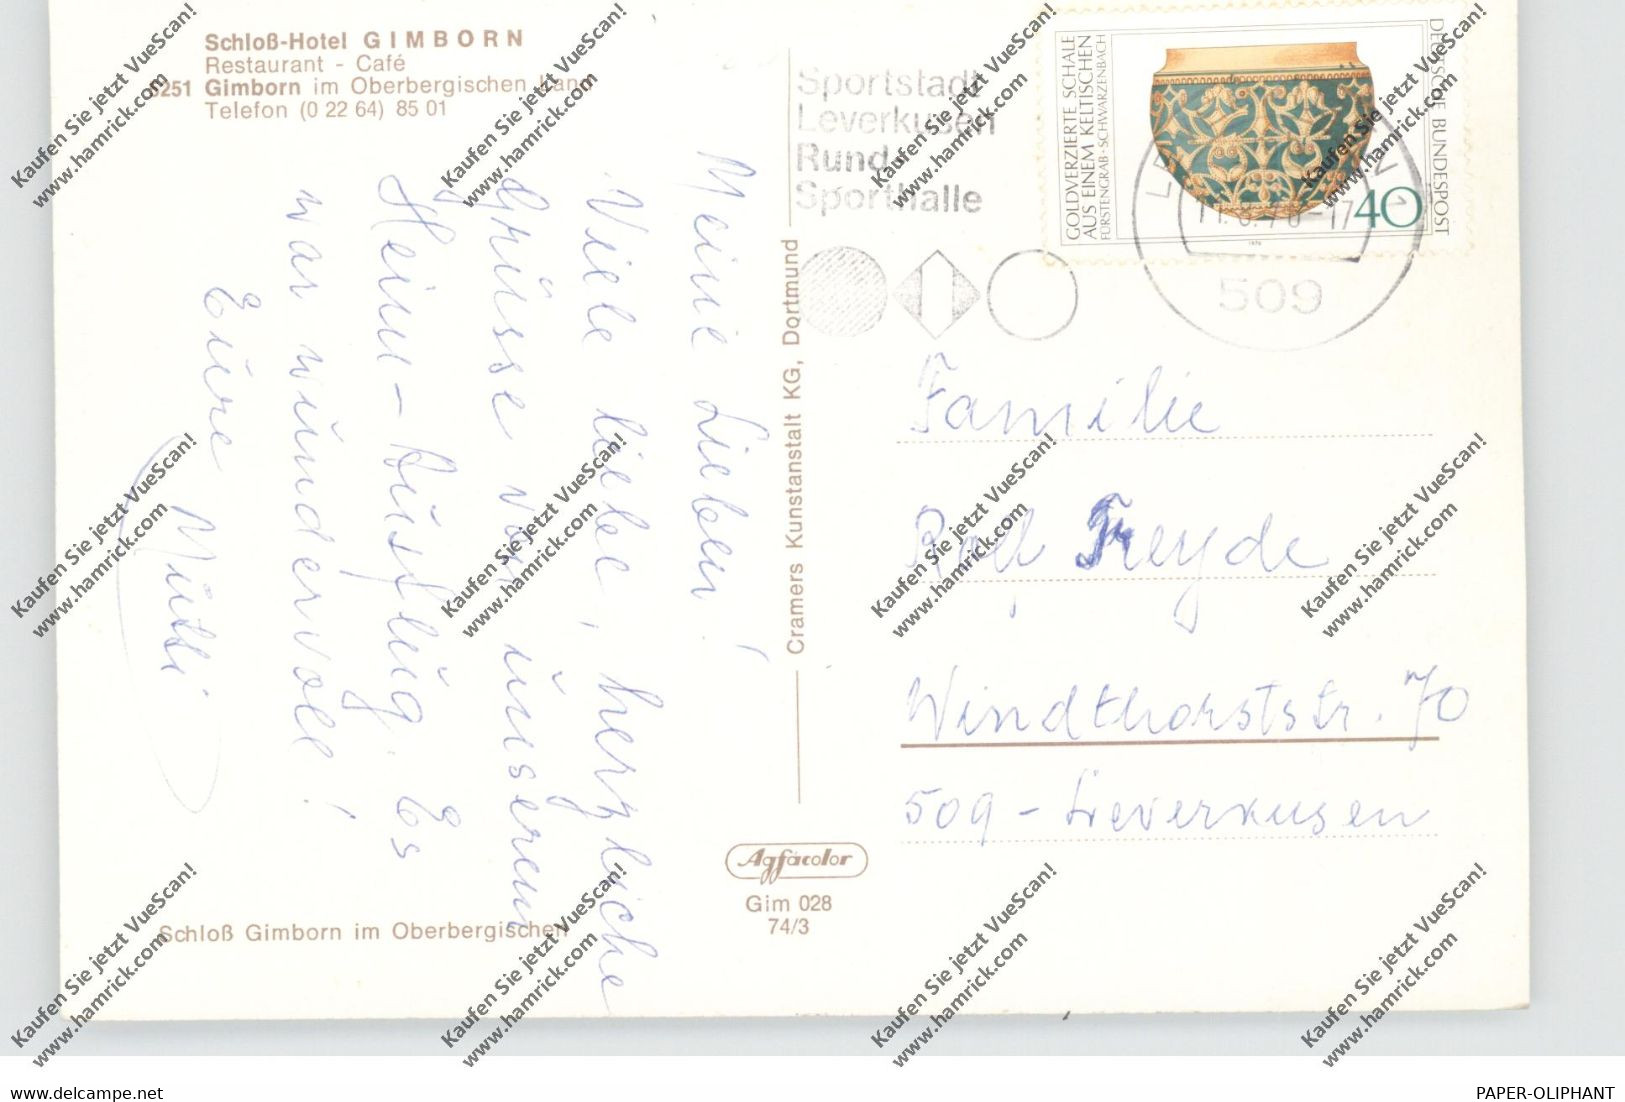 Schloß-Hotel GIMBORN
Restaurant - Café
5251 Gimborn im Oberbergischen Land
Telefon (0 22 64) 85 01
Meine Lieben!
Viele liebe, herzliche
Grüsse von unserem
Heim-Ausflug. Es
war wundervoll!
Eure
Mutti
Schloß Gimborn im Oberbergischen
Cramers Kunstanstalt KG, Dortmund
Agfacolor
Gim 028
74/3
Sportstadt
Leverkusen
Runde
Sporthalle
509
GOLDVERZIERTE SCHALE
AUS EINEM KELTISCHEN
FÜRSTENGRAB · SCHWARZENBACH
DEUTSCHE BUNDESPOST
40
1976
Familie
Rolf Freyde
Windthorststr. 70
509 - Leverkusen
Kaufen Sie jetzt VueScan!
www.hamrick.com
Kaufen Sie jetzt VueScan!
www.hamrick.com
Kaufen Sie jetzt VueScan!
www.hamrick.com
Kaufen Sie jetzt VueScan!
www.hamrick.com
Kaufen Sie jetzt VueScan!
www.hamrick.com
Kaufen Sie jetzt VueScan!
www.hamrick.com
Kaufen Sie jetzt VueScan!
www.hamrick.com
Kaufen Sie jetzt VueScan!
www.hamrick.com
Kaufen Sie jetzt VueScan!
www.hamrick.com
Kaufen Sie jetzt VueScan!
www.hamrick.com
Kaufen Sie jetzt VueScan!
www.hamrick.com
Kaufen Sie jetzt VueScan!
www.hamrick.com
www.delcampe.net
PAPER-OLIPHANT